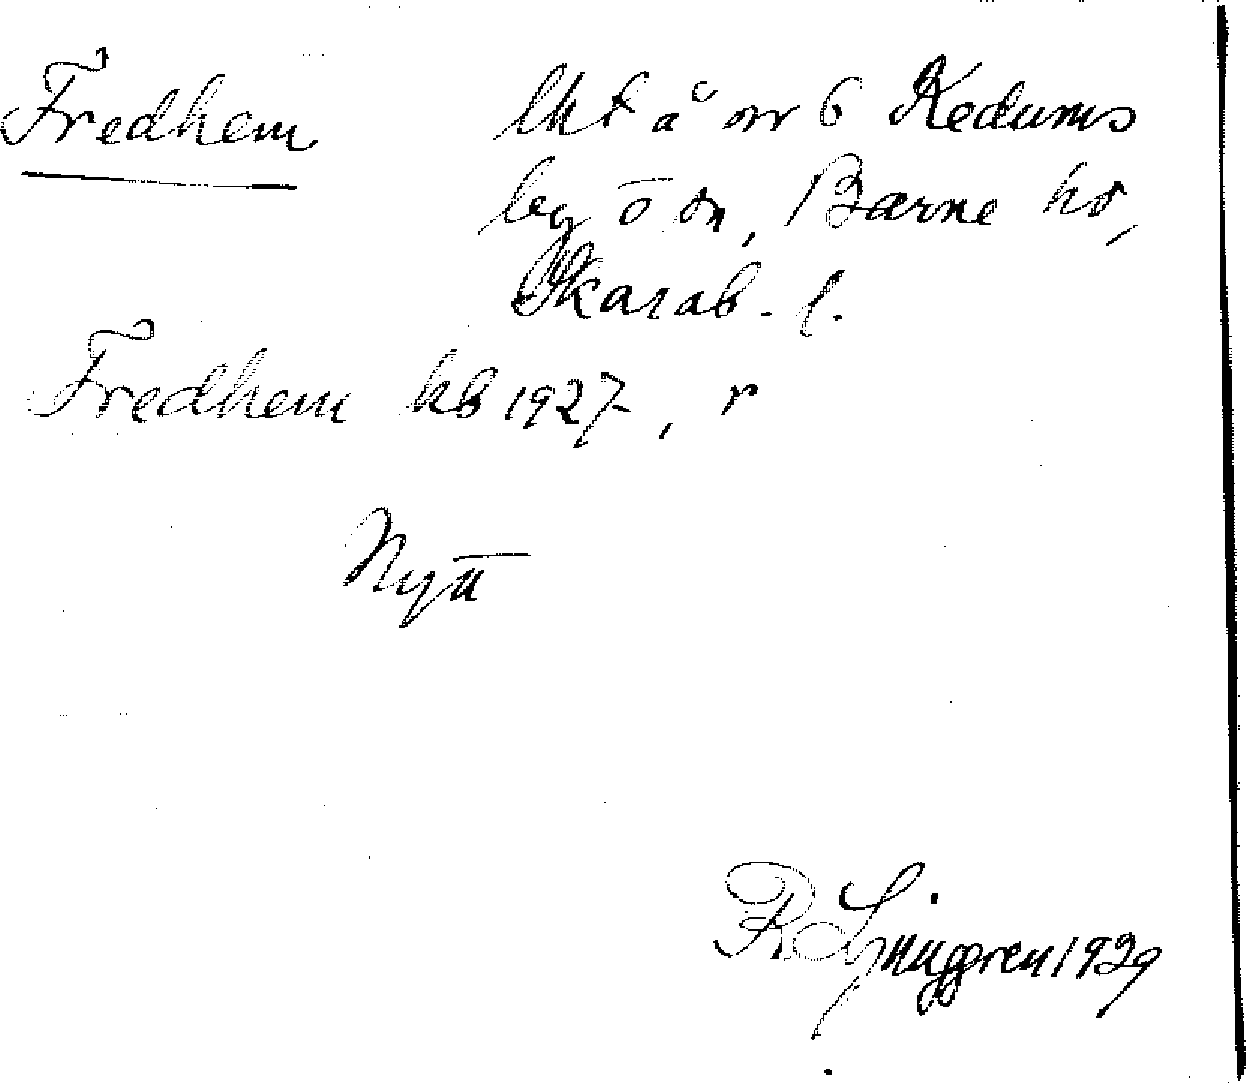 Fredhem lht å nr 6 Kedums
by ö sn, Barne hd,
Skarab. l.
Fredhem kb 1927, r
Nyū
R Ljunggren 1929